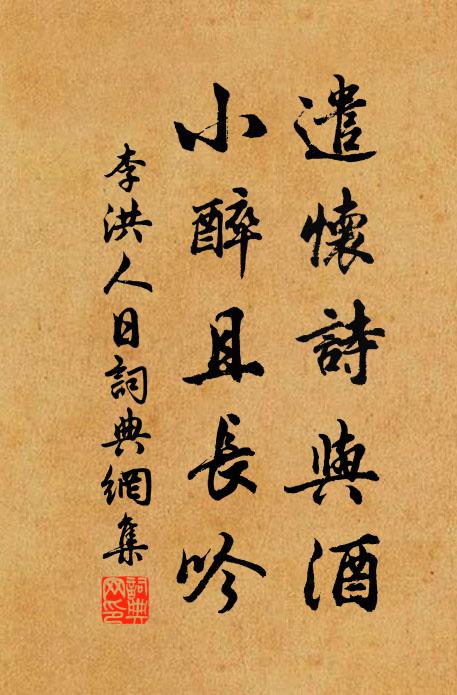 遣懷詩與酒
小醉且長吟
李洪人日詞典網集
詞典
网印